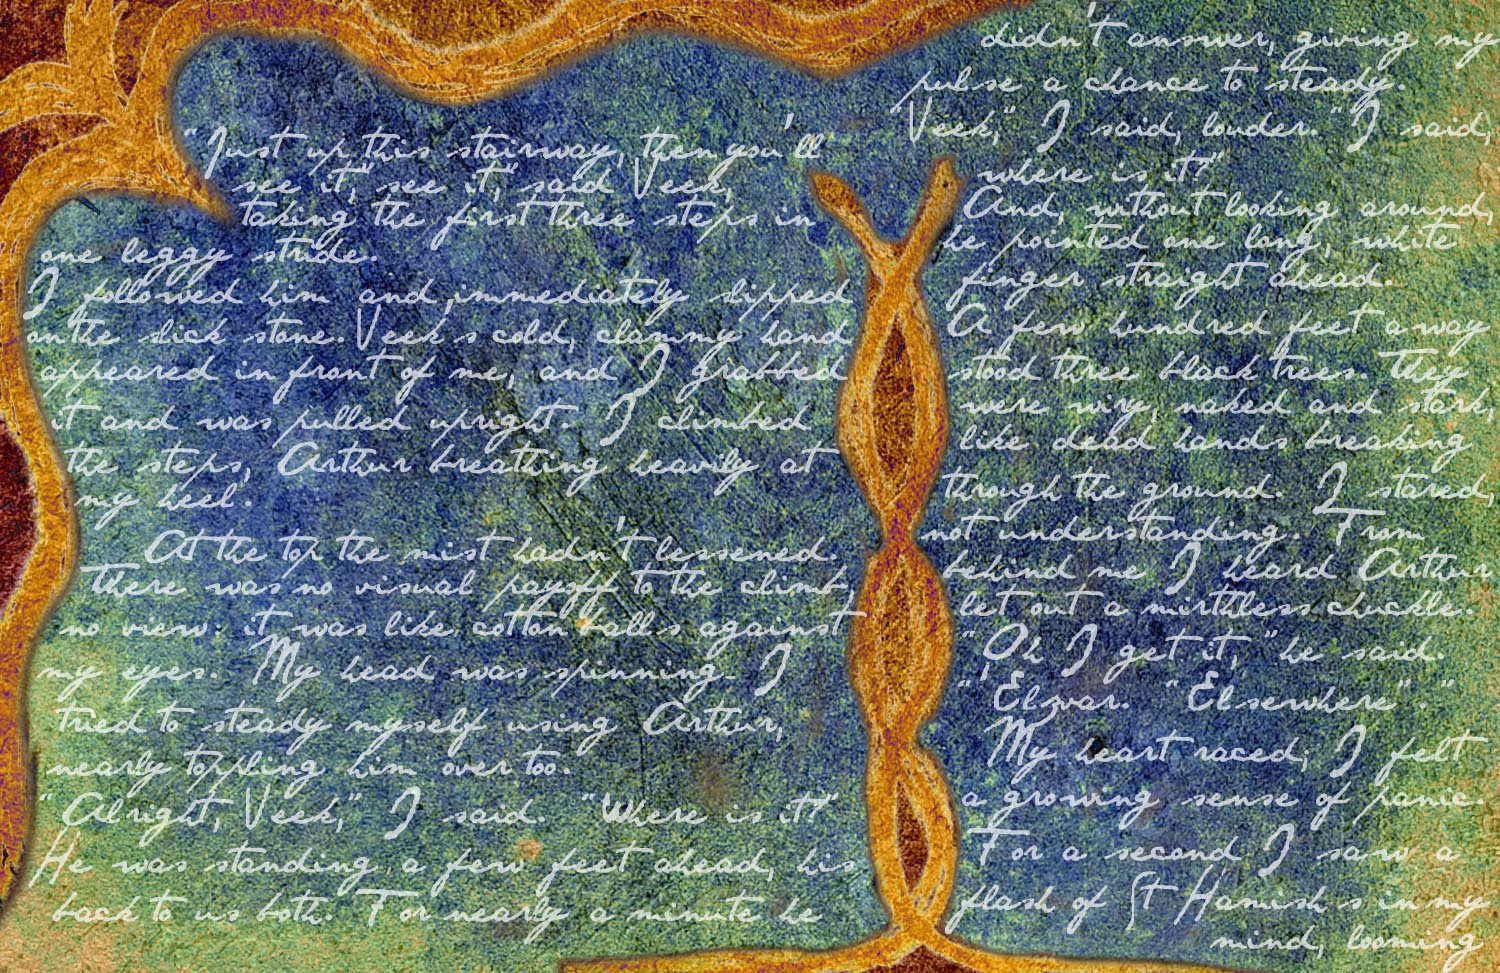 "Just up this stairway, then you'll
see it, see it," said Veek,
taking the first three steps in
one leggy stride.
I followed him and immediately slipped
on the slick stone. Veek's cold, clammy hand
appeared in front of me, and I grabbed
it and was pulled upright. I climbed
the steps, Arthur breathing heavily at
my heel.
At the top the mist hadn't lessened.
There was no visual payoff to the climb,
no view: it was like cotton balls against
my eyes. My head was spinning. I
tried to steady myself using Arthur,
nearly toppling him over too.
"Alright, Veek," I said. "Where is it?"
He was standing a few feet ahead, his
back to us both. For nearly a minute he
didn't answer, giving my
pulse a chance to steady.
"Veek," I said, louder. "I said,
where is it?"
And, without looking around,
he pointed one long, white
finger straight ahead.
A few hundred feet away
stood three black trees. They
were wiry, naked and stark,
like dead hands breaking
through the ground. I stared,
not understanding. From
behind me I heard Arthur
let out a mirthless chuckle.
"Oh I get it," he said.
"Elsvar. "Elsewhere"."
My heart raced; I felt
a growing sense of panic.
For a second I saw a
flash of St Hamish's in my
mind, looming